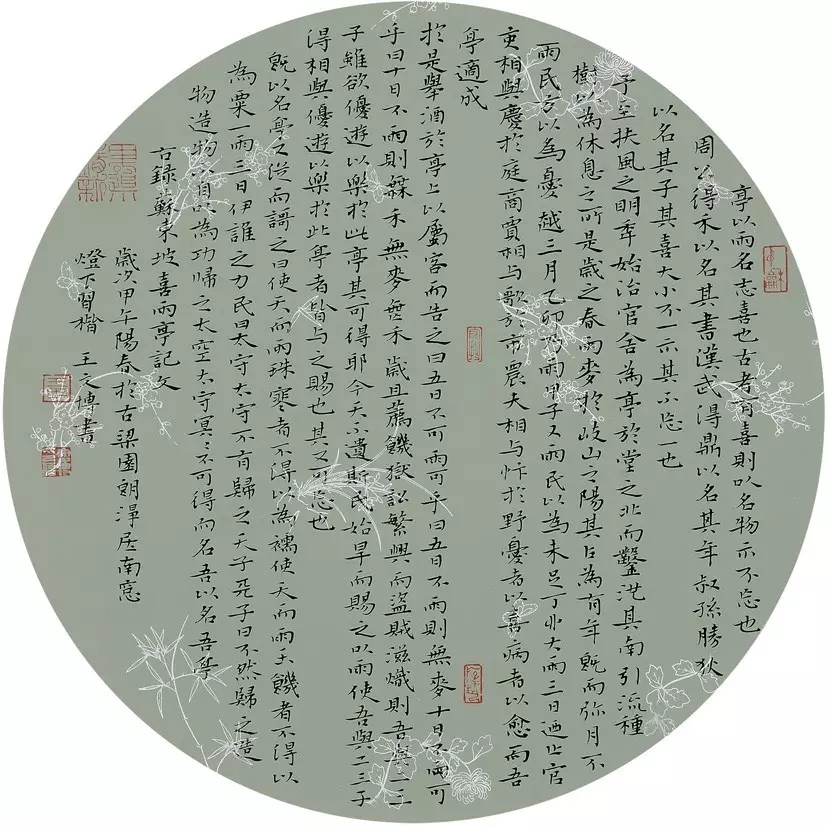 亭以雨名志喜也古者有喜則以名物示不忘也
周公得禾以名其書漢武得鼎以名其年叔孫勝狄
以名其子其喜大小不一示其不忘一也
予至扶風之明年始治官舍為亭於堂之北而鑿池其南引流種
樹以為休息之所是歲之春雨麥於岐山之陽其占為有年既而弥月不
雨民方以為憂越三月乙卯乃雨甲子又雨民以為未足丁卯大雨三日迺止官
吏相與慶於庭商賈相与歌於市農夫相与忭於野憂者以喜病者以愈而吾
亭適成
於是舉酒於亭上以屬客而告之曰五日不可雨可乎曰五日不雨則無麥十日不雨可
乎曰十日不雨則無禾無麥無禾歲且薦饑獄訟繁興而盜賊滋熾則吾與二三
子雖欲優遊以樂於此亭其可得耶今天不遺斯民始旱而賜之以雨使吾與二三子
得相與優遊以樂於此亭者皆与之賜也其又可忘也
既以名亭又從而謌之曰使天而雨珠寒者不得以為襦使天而雨玉饑者不得以
為粟一雨三日伊誰之力民曰太守太守不有歸之天子天子曰不然歸之造
物造物以自以為功歸之太空太守冥冥不可得而名吾以名吾亭
右錄蘇東坡喜雨亭記文
歲次甲午陽春於古梁園朗淨居南窓
燈下習楷 王文博書